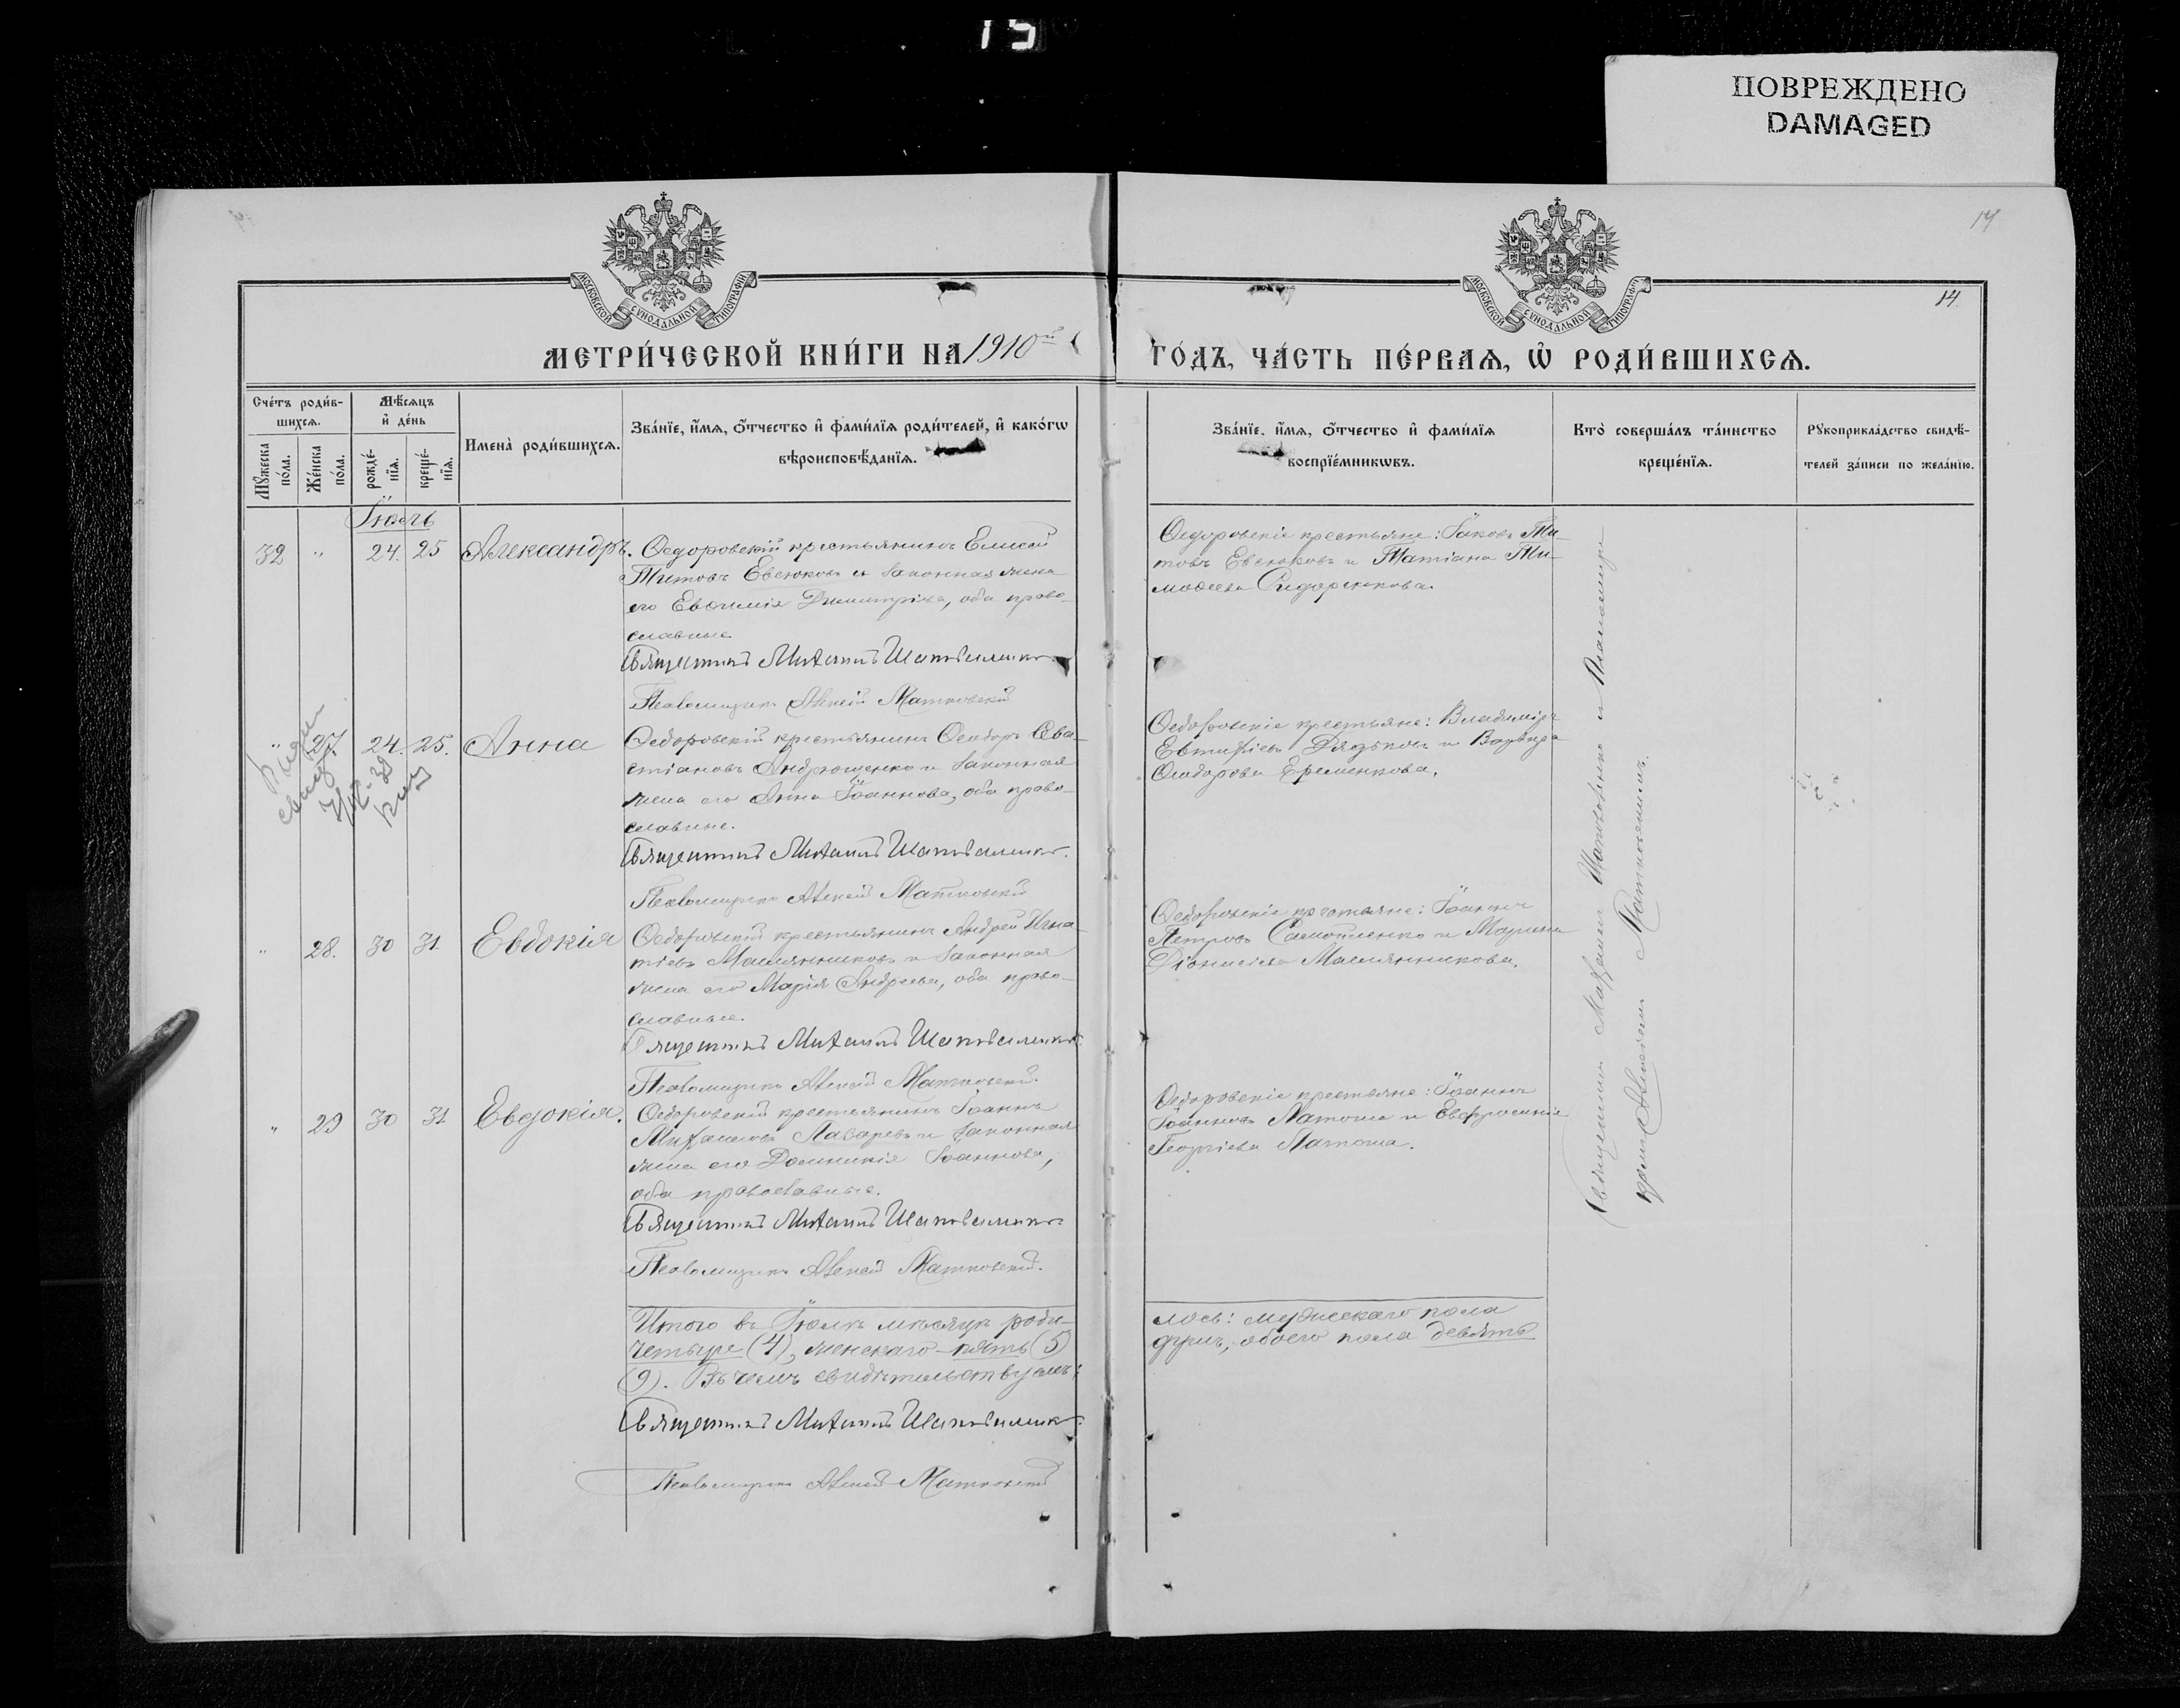 15
ПОВРЕЖДЕНО
DAMAGED
14
14.
МОСКОВСКОЙ СѴНОДАЛЬНОЙ ТИПОГРАФІИ
МОСКОВСКОЙ СѴНОДАЛЬНОЙ ТИПОГРАФІИ
МЕТРИ́ЧЕСКОЙ КНИ́ГИ НА 1910й
ГО́ДЪ, ЧА́СТЬ ПЕ́РВАѦ, Ѡ҆ РОДИ́ВШИХСѦ.
Сче́тъ роди́в-
шихсѧ.
Мꙋжеска
по́ла.
Же́нска
по́ла.
Мѣ́сѧцъ
и҆ де́нь
рожде́-
нїѧ.
креще́-
нїѧ.
Имена̀ роди́вшихсѧ.
Зва́нїе, и҆́мѧ, ѻ҆́тчество и҆ фами́лїѧ роди́телей, и҆ како́гѡ
вѣроисповѣ́данїѧ.
Зва́нїе, и҆́мѧ, ѻ҆́тчество и҆ фами́лїѧ
воспрїе́мникѡвъ.
Кто̀ соверша́лъ та́инство
креще́нїѧ.
Рꙋкоприкла́дство свидѣ́-
телей за́писи по жела́нїю.
Іюль
32 " 24. 25 Александръ.
Ѳедоровскій крестьянинъ Елисей
Титовъ Евсюковъ и законная жена
его Евѳимія Димитріева, оба право-
славные
Священникъ Михаилъ Шаповаленко.
Псаломщикъ Алексій Матковскій
Ѳедоровскіе крестьяне: Іаковъ Ти-
товъ Евсюковъ и Татіана Ти-
моѳеева Сидоренкова.
" 27. 24. 25. Анна
Ѳедоровскій крестьянинъ Ѳеодоръ Сева-
стіановъ Андрющенко и законная
жена его Анна Іоаннова, оба право-
славные.
Священникъ Михаилъ Шаповаленко.
Псаломщикъ Алексій Матковскій
Ѳедоровскіе крестьяне: Владиміръ
Евтихіевъ Дядьковъ и Варвара
Ѳеодорова Еременкова.
" 28. 30 31 Евдокія
Ѳедоровскій крестьянинъ Андрей Игна-
тіевъ Маслянниковъ и законная
жена его Марія Андреева, оба право-
славные.
Священникъ Михаилъ Шаповаленко.
Псаломщикъ Алексій Матковскій.
Ѳедоровскіе крестьяне: Іоаннъ
Петровъ Самойленко и Марина
Діонисіева Маслянникова.
" 29 30 31 Евдокія.
Ѳедоровскій крестьянинъ Іоаннъ
Михаиловъ Лазаревъ и законная
жена его Домникія Іоаннова,
оба православные.
Священникъ Михаилъ Шаповаленко
Псаломщикъ Алексій Матковскій.
Ѳедоровскіе крестьяне: Іоаннъ
Іоанновъ Латоша и Евфросинія
Георгіева Латоша.
Священникъ Михаилъ Шаповаленко и Псаломщикъ
Алексій Матковскій.
Итого въ Іюлѣ мѣсяцѣ роди-
лось: мужескаго пола
четыре (4), женскаго - пять (5)
душъ, обоего пола девять
(9). Въ чемъ свидѣтельствуемъ:
Священникъ Михаилъ Шаповаленко.
Псаломщикъ Алексій Матковскій